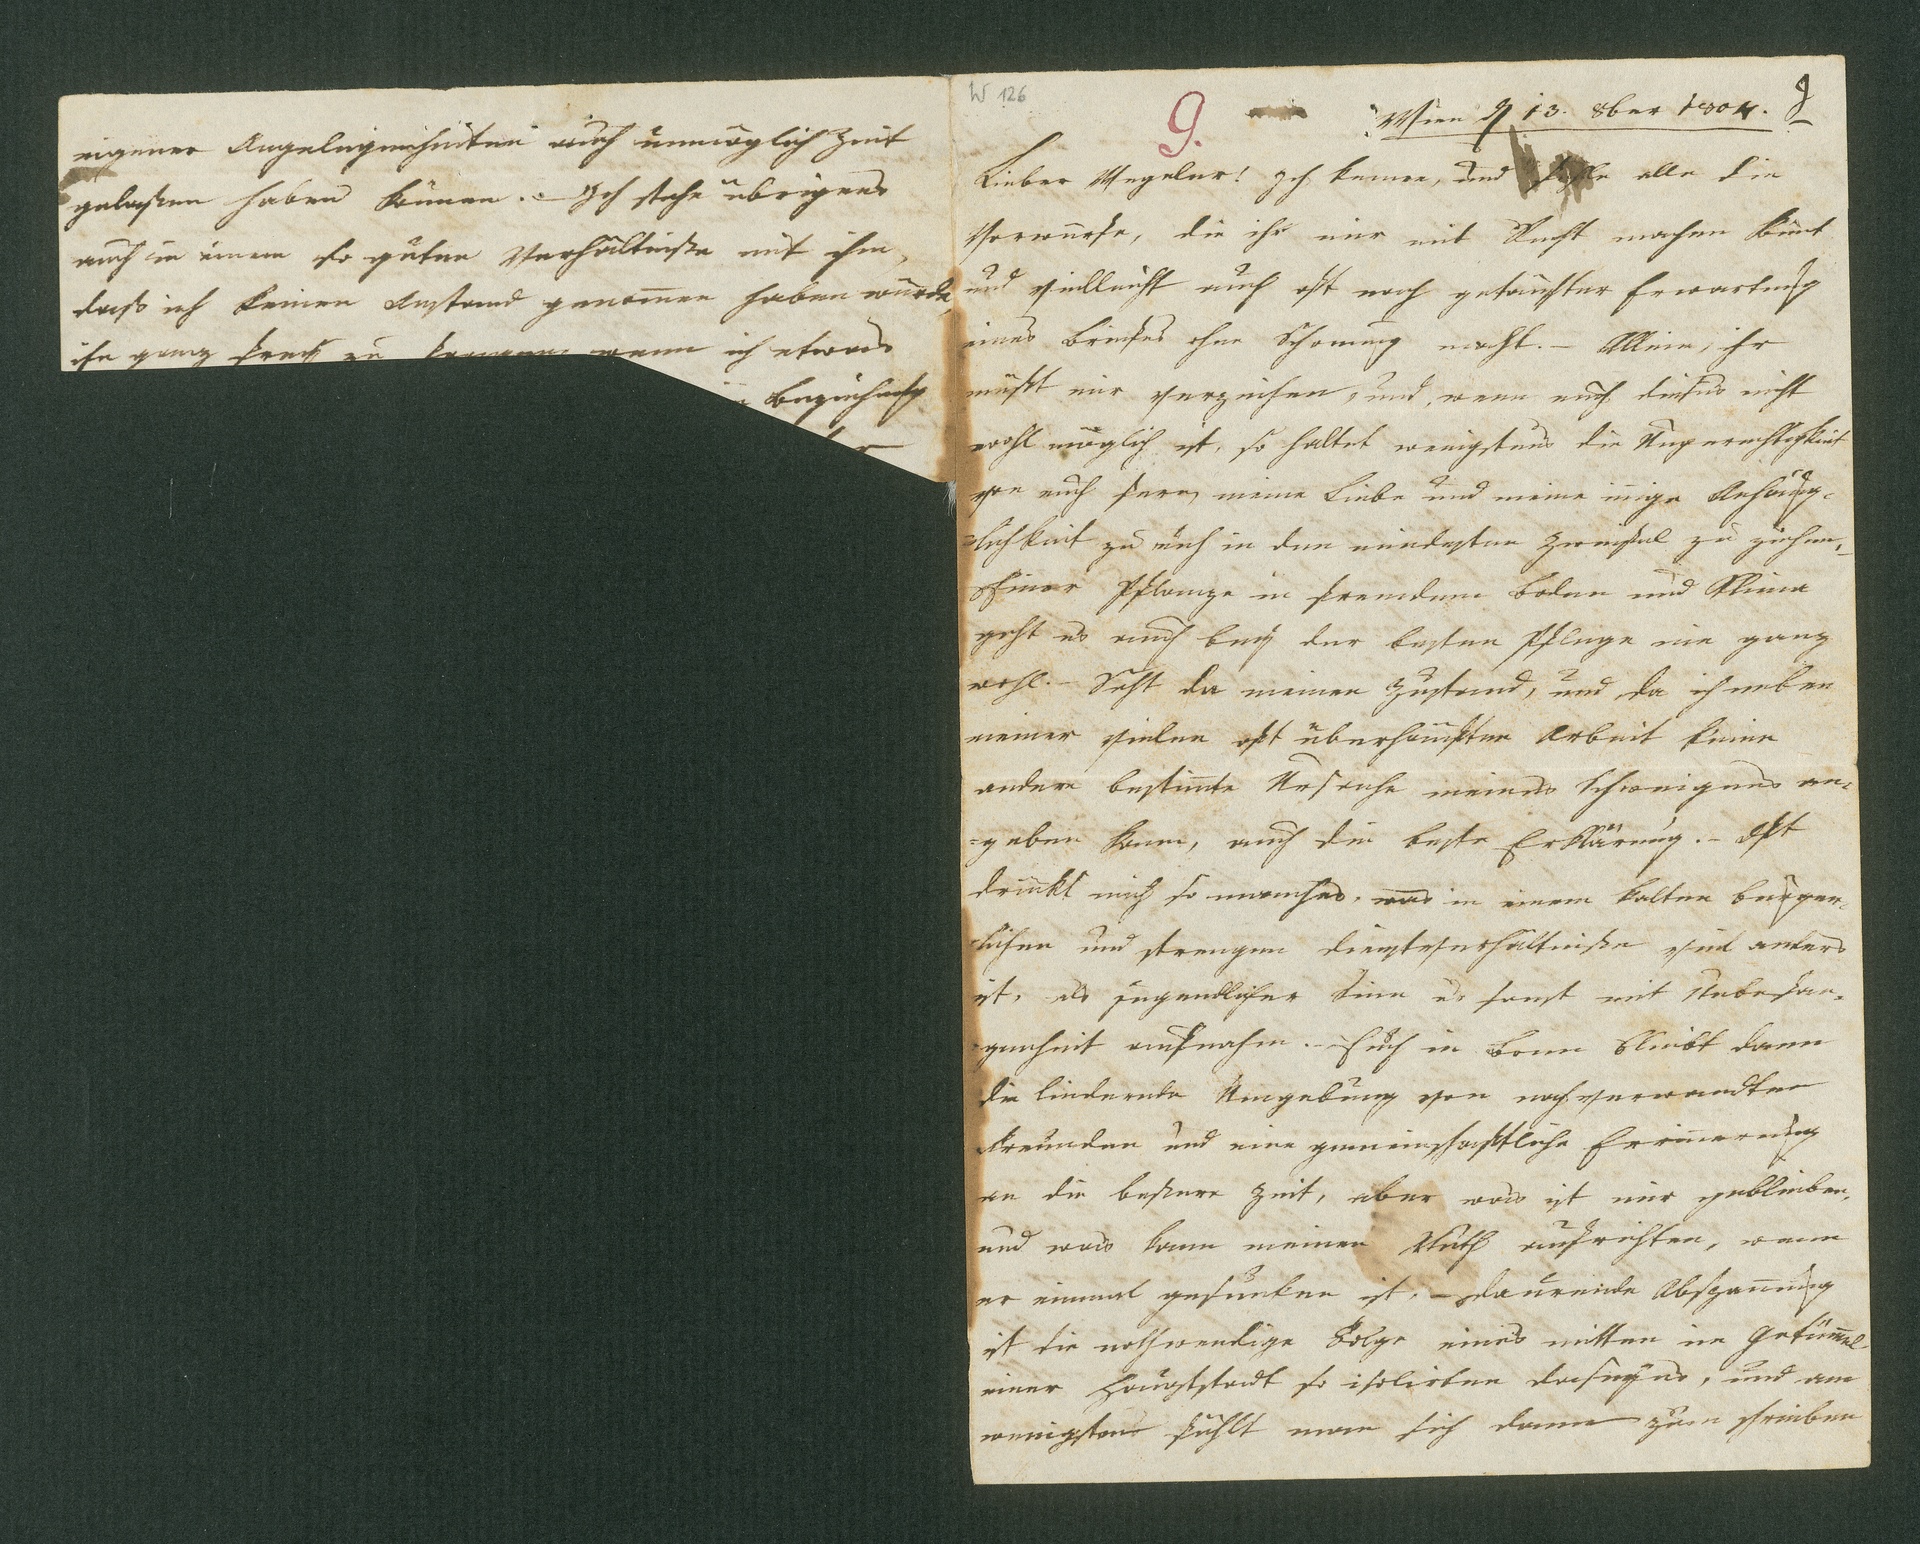 eigener Angelegenheiten auch unmöglich Zeit
gelaßen haben können. – Ich stehe übrigens
auch in einem so guten Verhältniße mit ihm,
daß ich keinen Anstand genom̅en haben würde,
ihn ganz frey zu wenn ich etwas
Beziehung
W 126
9.
Wien d 13. 8ber 1804.
Lieber Wegeler! Ich kenne, und fühle alle die
Vorwürfe, die ihr mir mit Recht machen kön̅t
und vielleicht auch oft nach getäuschter Erwartung
eines Briefes ohne Schonung macht. – Allein, ihr
müßt mir verzeihen, und, wenn euch dieses nicht
wohl möglich ist, so haltet wenigstens die Ungerechtigkeit
von euch fern, meine Liebe und meine in̅ige Anhäng-
=lichkeit zu euch in den mindesten Zweifel zu ziehen, –
Einer Pflanze in fremdem Boden und Klima
geht es auch bey der besten Pflege nie ganz
wohl. – Seht da meinen Zustand, und da ich neben
meiner vielen oft überhäuften Arbeit keine
andere bestim̅te Ursache meines Schweigens an=
=geben kann, auch die beste Erklärung. – Oft
drückt mich so manches, was in einem kalten bürger-
=lichen und strengen Dienstverhältniße viel anders
ist, als jugendlicher Sinn es sonst mit Unbefan-
=genheit aufnahm. – Euch in Bonn bleibt dann
die lindernde Umgebung von nahverwandten
Freunden und eine gemeinschaftliche Erin̅erung
an die beßere Zeit, aber was ist mir geblieben,
und was kann meinen Muth aufrichten, wenn
er einmal gesunken ist. – daurende Abspan̅ung
ist die nothwendige Folge eines mitten im Getüm̅el
einer Hauptstadt so isolirten Daseyns, und am
wenigsten fühlt man sich dann zum schreiben